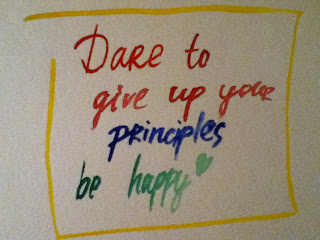 Dare to
give up your
principles
be happy